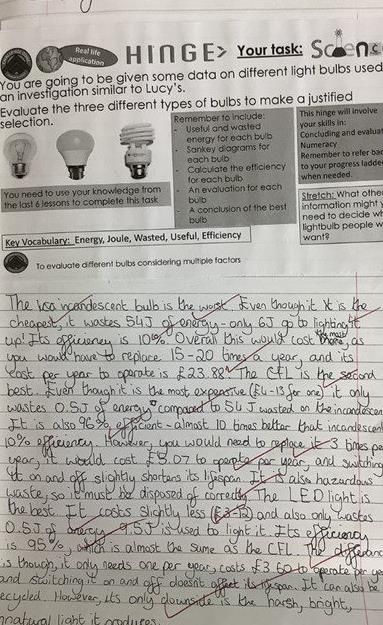 Real life
application
HINGE> Your task: Scienc
You are going to be given some data on different light bulbs used
an investigation similar to Lucy's.
Evaluate the three different types of bulbs to make a justified
selection.
Remember to include:
- Useful and wasted
energy for each bulb
- Sankey diagrams for
each bulb
- Calculate the efficiency
for each bulb
- An evaluation for each
bulb
- A conclusion of the best
bulb
This hinge will involve
your skills in:
Concluding and evaluat
Numeracy
Remember to refer bac
to your progress ladde
when needed.
You need to use your knowledge from
the last 6 lessons to complete this task
Stretch: What othe
information might y
need to decide wh
lightbulb people w
want?
Key Vocabulary: Energy, Joule, Wasted, Useful, Efficiency
To evaluate different bulbs considering multiple factors
The incandescent bulb is the worst. Even though it is the
cheapest, it wastes 54J of energy - only 6J go to lighting it
up! Its efficiency is 10%. Overall this would cost the most, as
you would have to replace 15-20 times a year, and its
cost per year to operate is £23.88. The CFL is the second
best. Even though it is the most expensive (£4-13 for one) it only
wastes 0.5J of energy compared to 54J wasted on the incandescen
It is also 96% efficient - almost 10 times better that incandescent
10% efficiency. However, you would need to replace it 3 times pe
year, it would cost £5.07 to operate per year, and switching
it on and off slightly shortens its lifespan. It is also hazardous
waste, so it must be disposed of correctly. The LED light is
the best. It costs slightly less (£3-12) and also only wastes
0.5J of energy. 9.5J is used to light it. Its efficiency
is 95%, which is almost the same as the CFL. The differenc
is though, it only needs one per year, costs £3.60 to operate per ye
and switching it on and off doesn't affect its lifespan. It can also be
ecycled. However, its only downside is the harsh, bright,
nnatural light it produces.